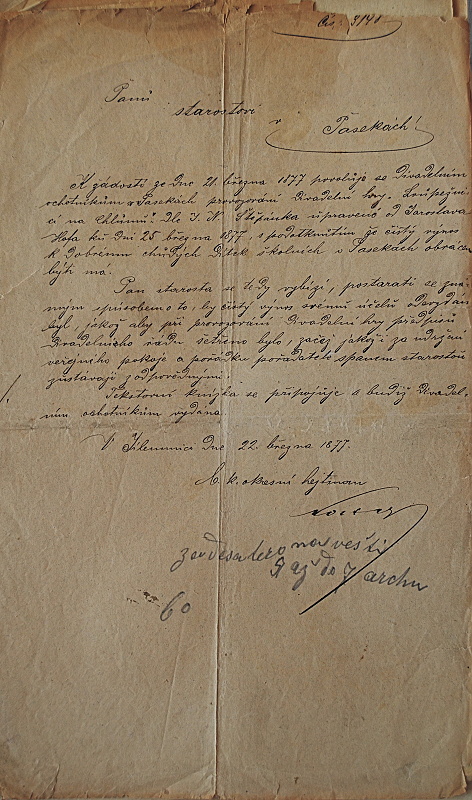 Čís. 3140
Panu
starostovi
v
Pasekách!
K žádosti ze dne 21. března 1877 povoluje se divadelním
ochotníkům v Pasekách provozování divadelní hry „Loupežní-
ci na Chlumu“ dle J. N. Štěpánka upraveno od Jaroslava
Hofa ku dni 25 března 1877, s podotknutím že čistý výnos
k dobrému chudých dítek školních v Pasekách obrácen
býti má.
Pan starosta se tedy vybízí, postarati se zná-
mým spůsobem o to, by čistý výnos svému účelu odevzdán
byl, jakož aby při provozování divadelní hry předpisů
divadelního řádu šetřeno bylo, začež jakož i za udržení
veřejného pokoje a pořádku pořadatel s panem starostou
zůstávají zodpovědnými.
Textovní knížka se připojuje a budiž divadel-
ním ochotníkům vydána
V Jilemnici dne 22. března 1877.
C. k. okresní hejtman
na vešti
9 až do 7 archu
60